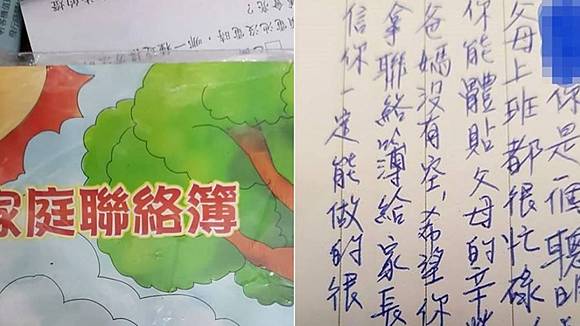 電池沒電時，哪一種
家庭聯絡簿
你是個聰明
父母上班都很忙碌，
你能體貼父母的辛
爸媽沒有空，希望你
拿聯絡簿給家長
信你一定能做的很